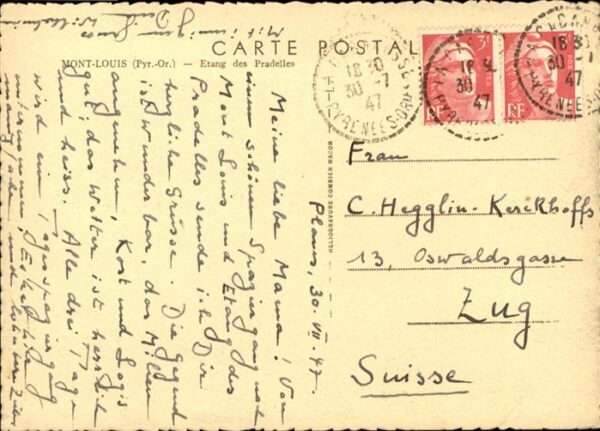 CARTE POSTALE
MONT-LOUIS (Pyr.-Or.) — Etang des Pradelles
18 30
30 -7
47
PYRENEES-ORles
18
30
47
18 30
30 -7
47
PYRENEES-OR
3F
RF
RF
Plans, 30. VII. 47.
Meine liebe Mama! Von
einem schönen Spaziergang nach
Mont Louis und Etang des
Pradelles sende ich Dir
herzliche Grüsse. Die Gegend
ist wunderbar, das Milieu
angenehm, Kost und Logis
gut, das Wetter ist herrlich
und heiss. Alle drei Tage
wird ein Tagesspaziergang
und
Mit
Frau
C. Hegglin-Kerckhoffs
13, Oswaldsgasse
Zug
Suisse